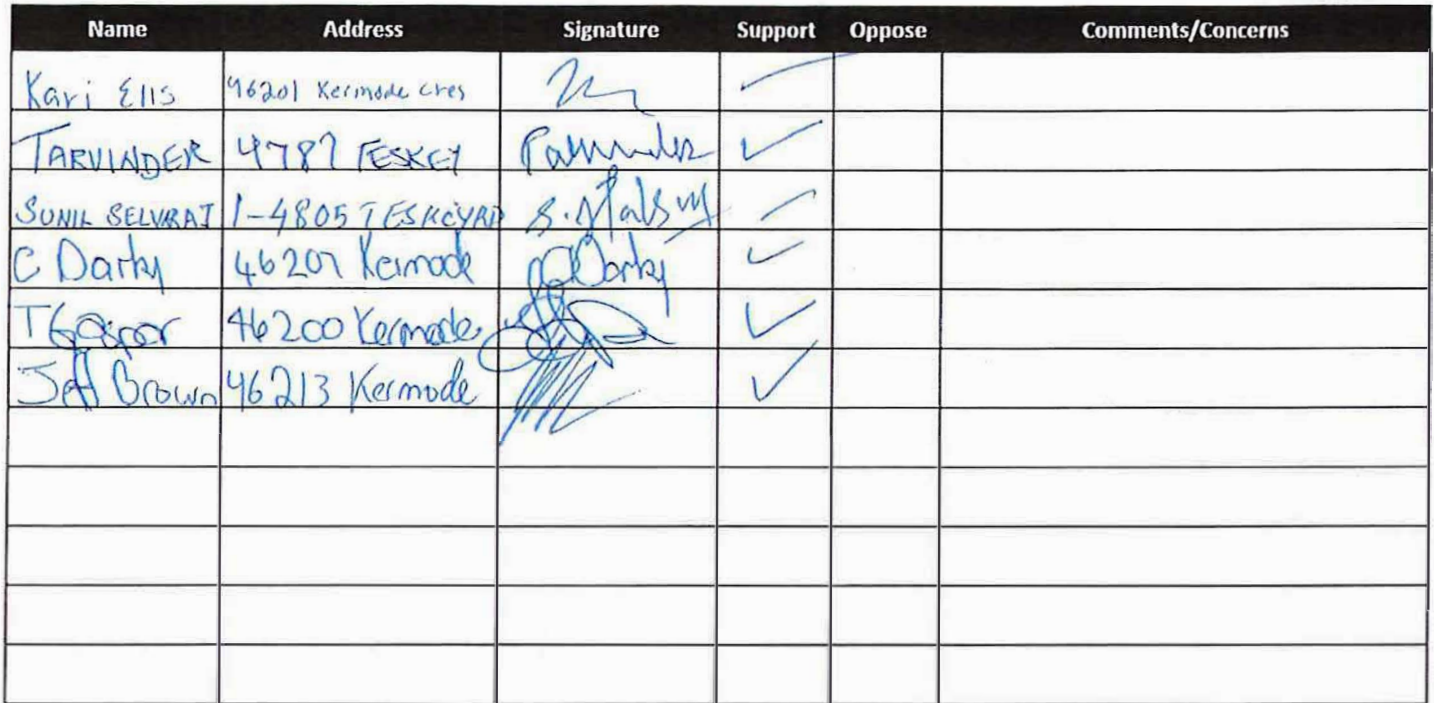 Name Address Signature Support Oppose Comments/Concerns
Kari Ells 46201 Kermode cres ✓
TARVINDER 4787 TESKEY ✓
SUNIL SELVARAJ 1-4805 TESKEY RD ✓
C Darky 46207 Kermode Darky ✓
T Gaspar 46200 Kermode ✓
Jeff Brown 46213 Kermode ✓